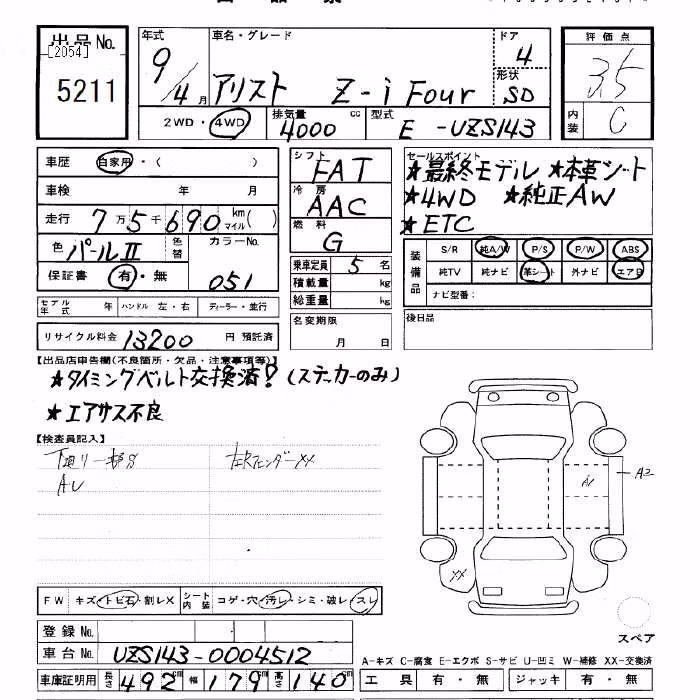 出品No.
[2054]
5211
年式
9/4月
車名・グレード
アリスト Z-i Four
ドア
4
形状
SD
2WD・4WD
排気量
4000 cc
型式
E-UZS143
評価点
3.5
内装
C
車歴 自家用・( )
車検 年 月
走行 7万5千690 km マイル( )
色 パールII
色替
カラーNo.
051
保証書 有・無
モデル年式 年 ハンドル 左・右 ディーラー・並行
リサイクル料金 13200 円 預託済
シフト
FAT
冷房
AAC
燃料
G
乗車定員 5 名
積載量 kg
総重量 kg
名変期限
月 日
セールスポイント
★最終モデル ★本革シート
★4WD ★純正AW
★ETC
装備品
S/R 純A/W P/S P/W ABS
純TV 純ナビ 革シート 外ナビ エアB
ナビ型番:
後日品
【出品店申告欄(不良箇所・欠品・注意事項等)】
★タイミングベルト交換済?(ステッカーのみ)
★エアサス不良
【検査員記入】
下廻り一部S 左Rフェンダー XX
AU
A1
A2
XX
FW キズ・トビ石・割レX
シート内装 コゲ・穴・汚レ・シミ・破レ・スレ
登録No.
車台No. UZS143-0004512
車庫証明用 長さ 492 cm 幅 179 cm 高さ 140 cm
スペア
A-キズ C-腐食 E-エクボ S-サビ U-凹ミ W-補修 XX-交換済
工具 有・無 ジャッキ 有・無